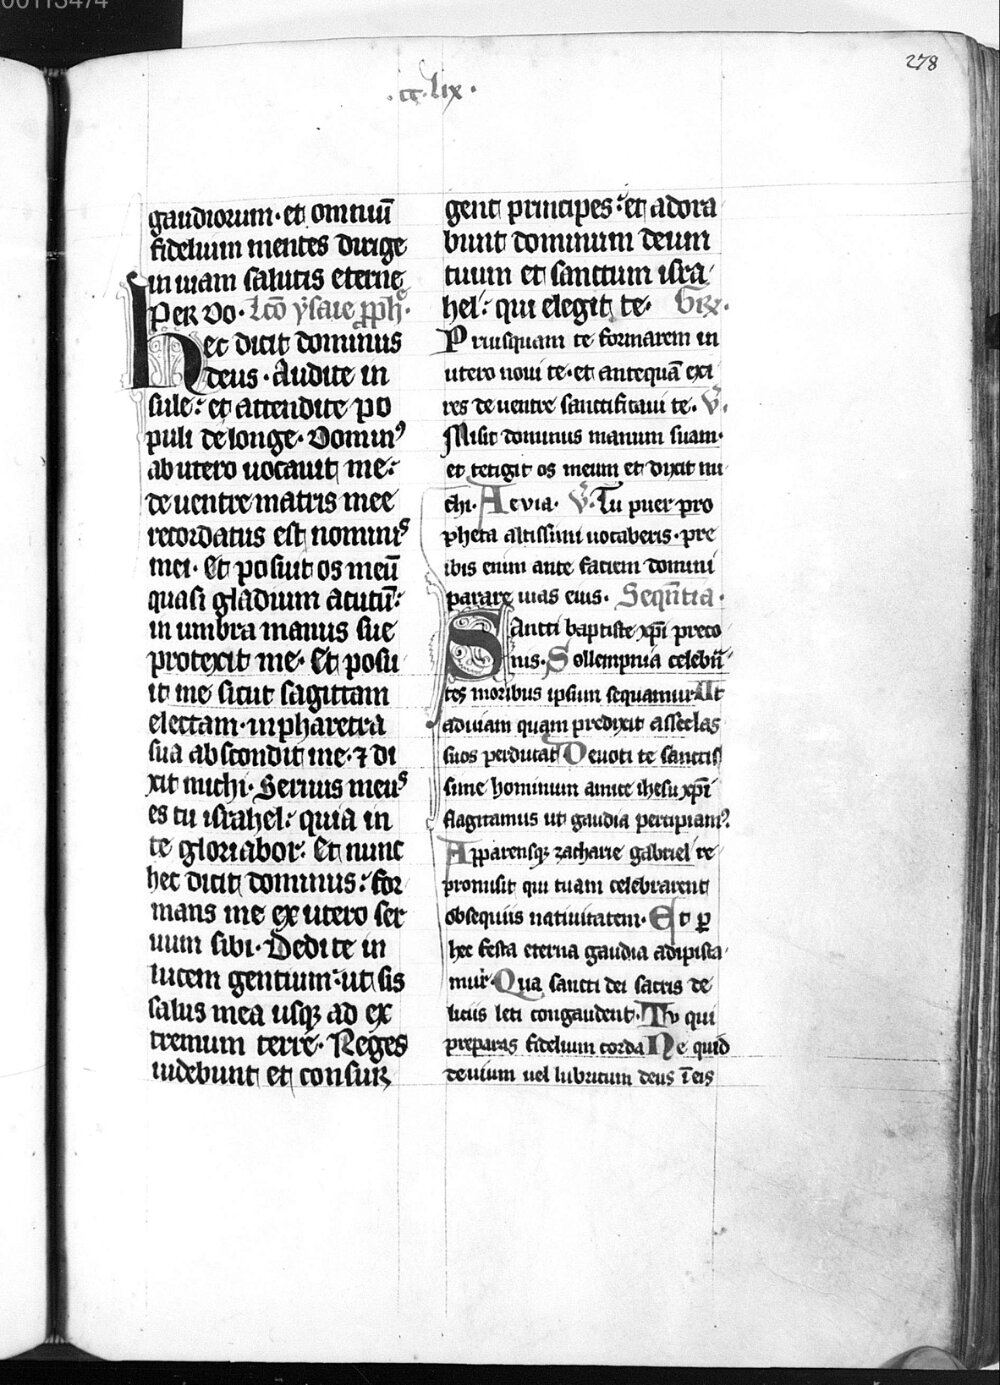 00113474
278
.cc.lix.
gaudiorum. et omniū
fidelium mentes dirige
in uiam salutis eterne
PER DO. Lcō ysaie pph̄.
hec dicit dominus
deus. Audite in
sule: et attendite po
puli de longe. Dominꝰ
ab utero uocauit me:
de uentre matris mee
recordatus est nominis
mei. Et posuit os meū
quasi gladium acutū:
in umbra manus sue
protexit me. Et posu
it me sicut sagittam
electam. in pharetra
sua abscondit me. ⁊ di
xit michi. Seruus meꝰ
es tu israhel: quia in
te gloriabor. Et nunc
hec dicit dominus: for
mans me ex utero ser
uum sibi. Dedi te in
lucem gentium: ut sis
salus mea usqꝫ ad ex
tremum terre. Reges
uidebunt et consur
gent principes: et adora
bunt dominum deum
tuum et sanctum isra
hel: qui elegit te. Gr̄.
Priusquam te formarem in
utero noui te. et antequā exi
res de uentre sanctificaui te. V̄.
Misit dominus manum suam.
et tetigit os meum et dixit mi
chi. Aeuia. V̄. Tu puer pro
pheta altissimi uocaberis. pre
ibis enim ante faciem domini
parare uias eius. Sequētia.
Sancti baptiste xp̄i preco
nis. Sollempnia celebrā
tes moribus ipsum sequamur Ut
ad uiam quam predixit asseclas
suos perducat Deuoti te sanctis
sime hominum amice ihesu xp̄i
flagitamus ut gaudia percipiamꝰ.
Apparensqꝫ zacharie gabriel re
promisit qui tuam celebrarent
obsequiis natiuitatem. Et ꝑ
hec festa eterna gaudia adipisca
mur. Qua sancti dei sacris de
liciis leti congaudent. Tu qui
preparas fidelium corda Ne quid
deuium uel lubricum deus ī eis